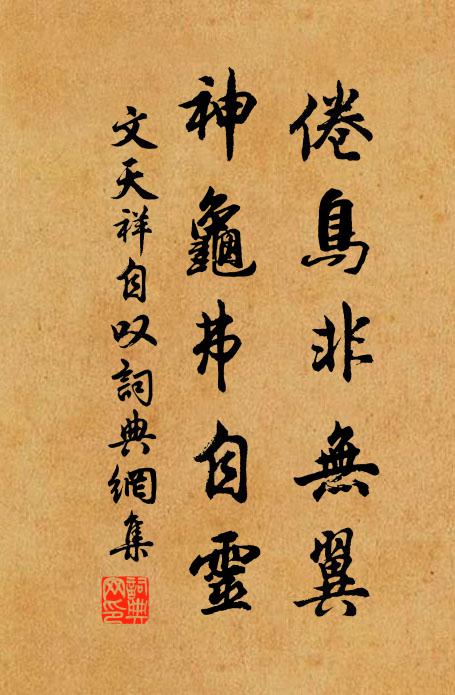 倦鳥非無翼
神龜弗自靈
文天祥自叹詞典網集
詞典
网印